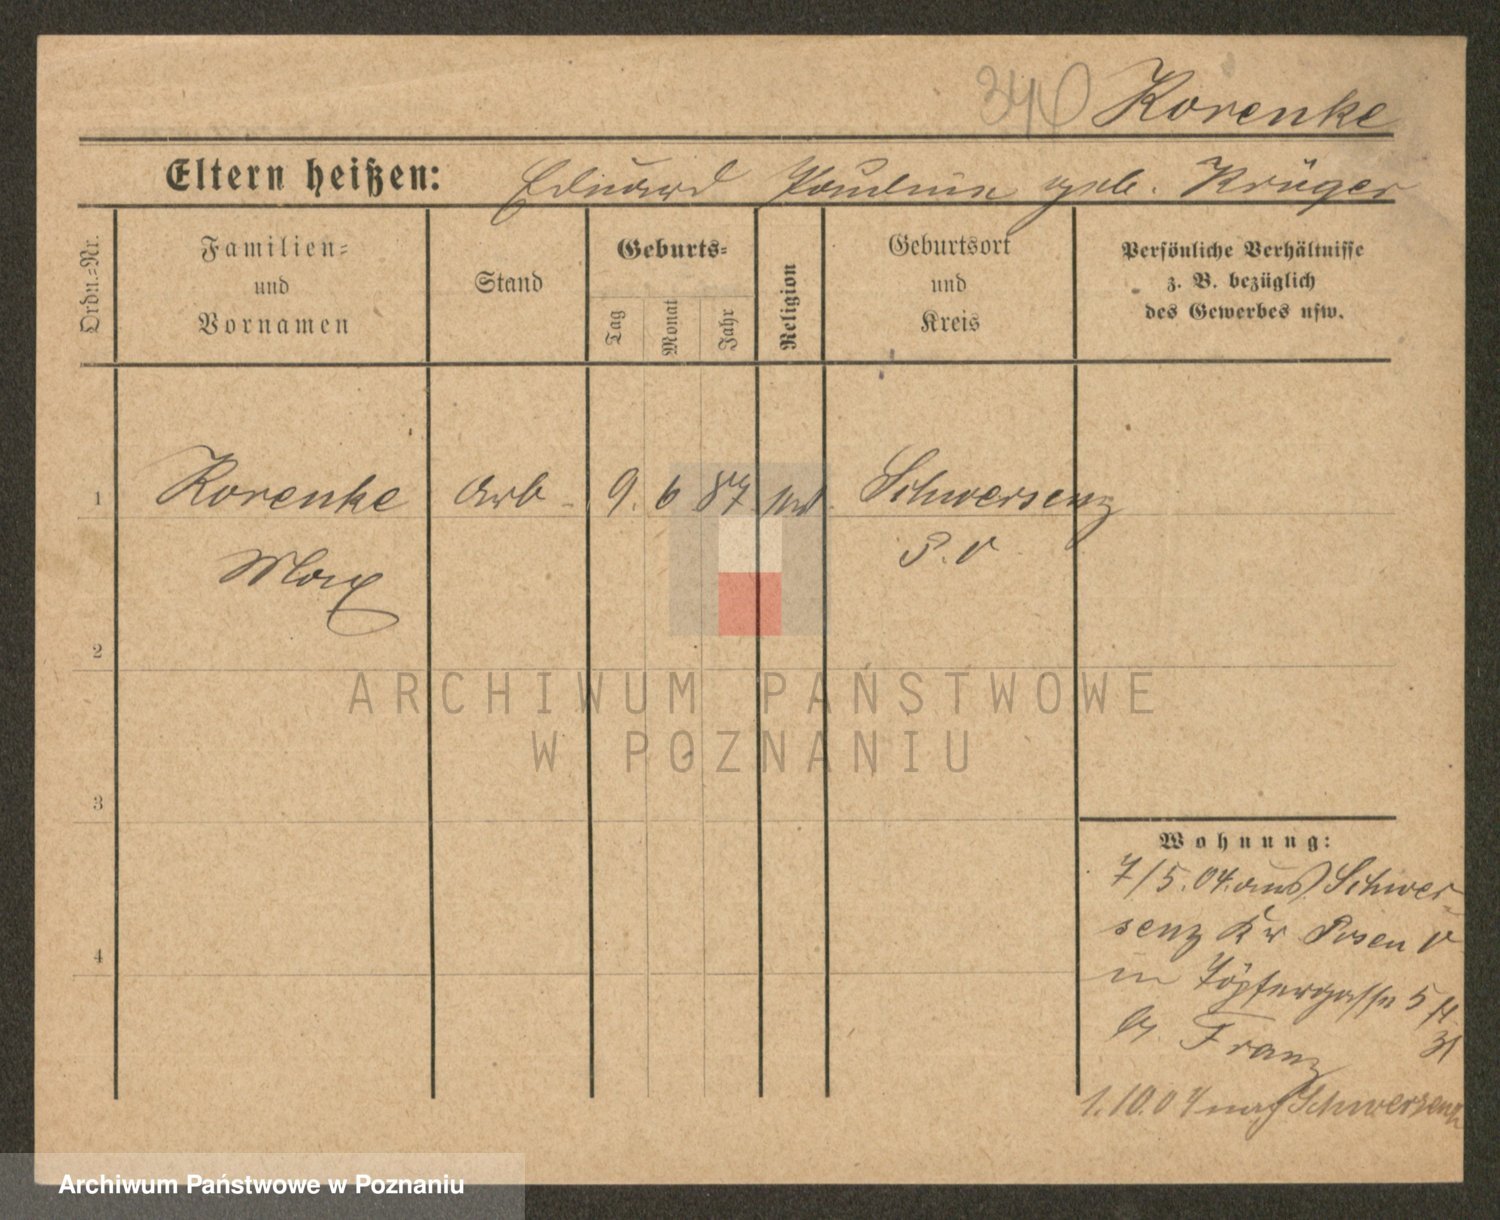 340 Korenke
Eltern heißen: Eduard Pauline geb. Krüger
Ordn.-Nr.
Familien-
und
Vornamen
Stand
Geburts-
Tag
Monat
Jahr
Religion
Geburtsort
und
Kreis
Persönliche Verhältnisse
z. B. bezüglich
des Gewerbes usw.
1 Korenke Arb 9. 6 87 Schwersenz
Max P. O
2
3
4
Wohnung:
7/5.04. aus Schwer-
senz Kr Posen O
in Töpfergasse 5
b. Franz
1.10.04 nach Schwersenz
ARCHIWUM PAŃSTWOWE
W POZNANIU
Archiwum Państwowe w Poznaniu